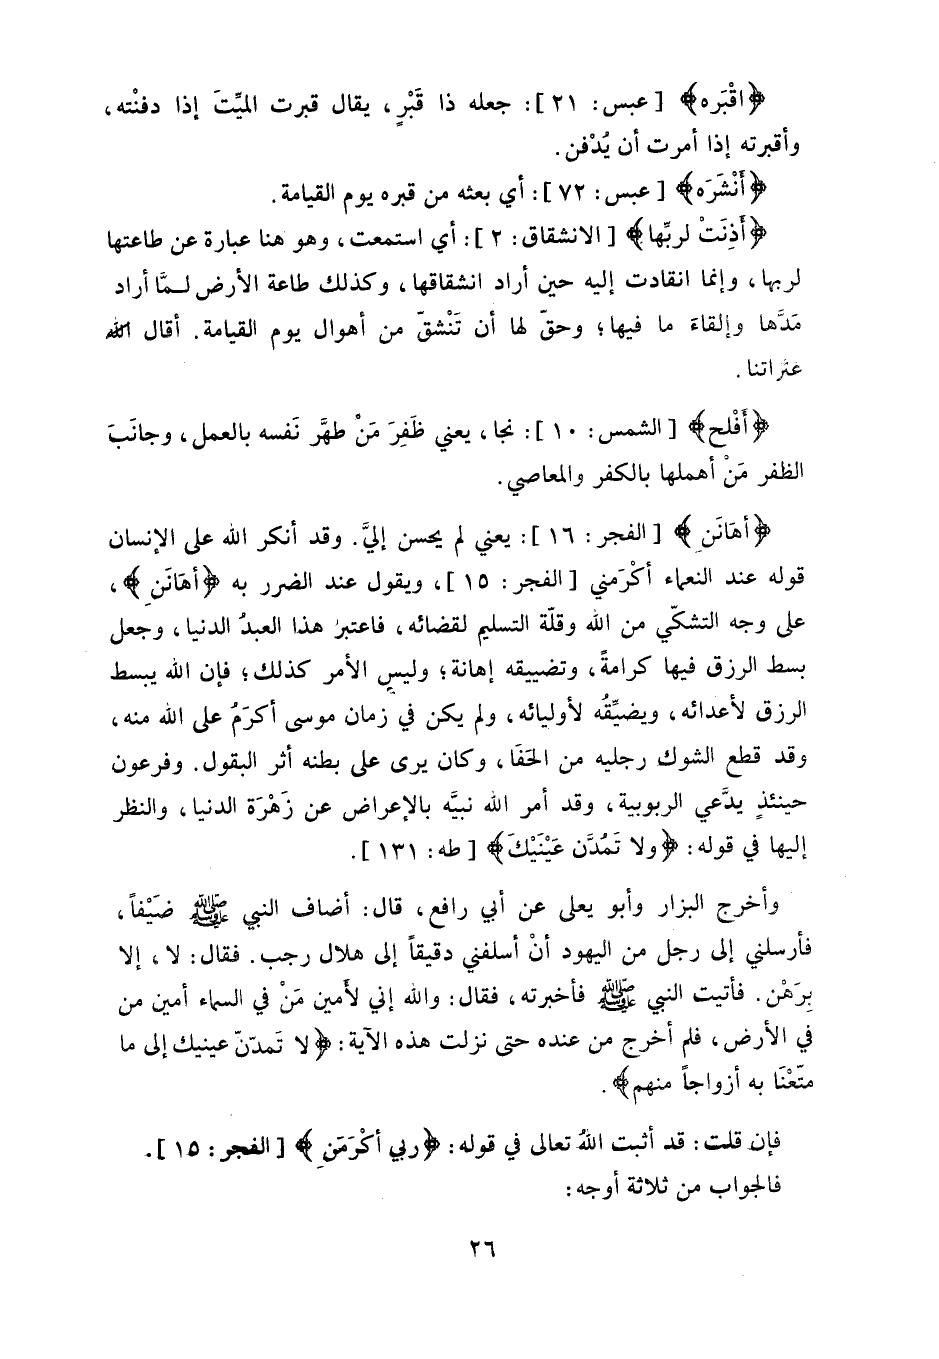 ﴿اقْبَره﴾ [ عبس: ٢١ ]: جعله ذا قَبْرٍ، يقال قبرت الميِّتَ إذا دفنْته،
وأقبرته إذا أمرت أن يُدْفن.
﴿أَنْشَرَه﴾ [ عبس: ٧٢ ]: أي بعثه من قبره يوم القيامة.
﴿أَذِنَتْ لربِّها﴾ [ الانشقاق: ٢ ]: أي استمعت، وهو هنا عبارة عن طاعتها
لربها، وإنما انقادت إليه حين أراد انشقاقها، وكذلك طاعة الأرض لـمَّا أراد
مَدَّها وإلقاءَ ما فيها؛ وحقّ لها أن تَنْشقّ من أهوال يوم القيامة. أقال الله
عثراتنا.
﴿أَفْلح﴾ [ الشمس: ١٠ ]: نجا، يعني ظَفِرَ مَنْ طهَّر نَفسه بالعمل، وجانَبَ
الظفر مَنْ أهملها بالكفر والمعاصي.
﴿أهَانَنِ﴾ [ الفجر: ١٦ ]: يعني لم يحسن إليَّ. وقد أنكر الله على الإنسان
قوله عند النعماء أكْرَمني [ الفجر: ١٥ ]، ويقول عند الضرر به ﴿أهَانَنِ﴾،
على وجه التشكّي من الله وقلّة التسليم لقضائه، فاعتبر هذا العبدُ الدنيا، وجعل
بسط الرزق فيها كرامةً، وتضييقه إهانة؛ وليس الأمر كذلك؛ فإن الله يبسط
الرزق لأعدائه، ويضيِّقُه لأوليائه، ولم يكن في زمان موسى أكرَمُ على الله منه،
وقد قطع الشوك رجليه من الحَفَا، وكان يرى على بطنه أثر البقول. وفرعون
حينئذٍ يدَّعي الربوبية، وقد أمر الله نبيَّه بالإعراض عن زَهْرَة الدنيا، والنظر
إليها في قوله: ﴿ولا تَمُدَّن عَيْنَيْكَ﴾ [ طه: ١٣١ ].
وأخرج البزار وأبو يعلى عن أبي رافع، قال: أضاف النبي ﷺ ضَيْفاً،
فأرسلني إلى رجل من اليهود أنْ أسلفني دقيقاً إلى هلال رجب. فقال: لا، إلا
بِرَهْن. فأتيت النبي ﷺ فأخبرته، فقال: والله إني لأَمين مَنْ في السماء أمين من
في الأرض، فلم أخرج من عنده حتى نزلت هذه الآية: ﴿لا تَمدّنّ عينيك إلى ما
متّعْنَا به أزواجاً منهم﴾.
فإن قلت: قد أثبت اللهُ تعالى في قوله: ﴿ربي أكْرَمَنِ﴾ [ الفجر: ١٥ ].
فالجواب من ثلاثة أوجه:
٢٦